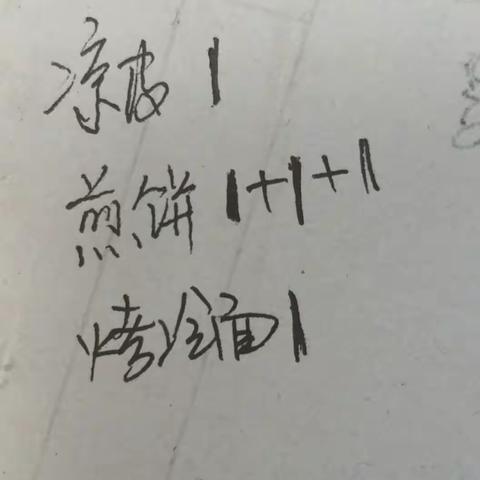 凉皮 1
煎饼 1+1+1
烤冷面 1